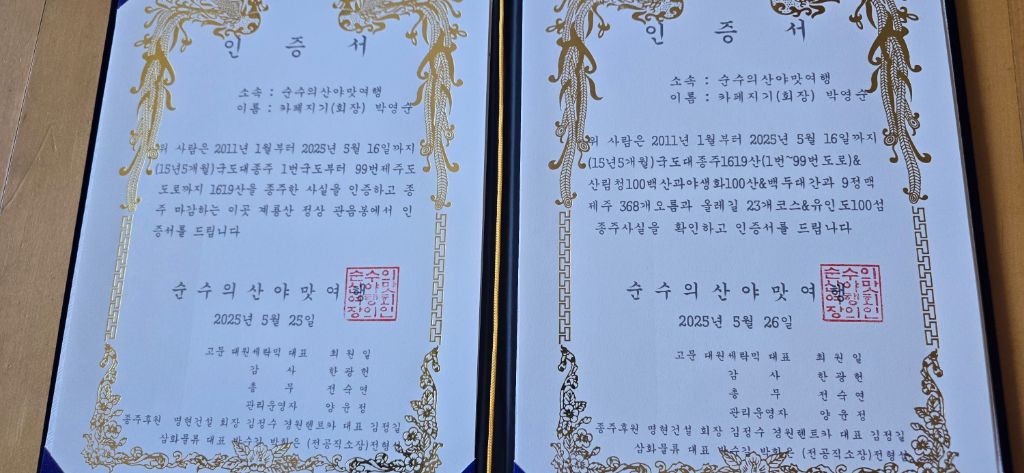 인 증 서
소속 : 순수의산야맛여행
이름 : 카페지기(회장) 박영순
위 사람은 2011년 1월부터 2025년 5월 16일까지
(15년5개월)국도대종주 1번국도부터 99번제주도
도로까지 1619산을 종주한 사실을 인증하고 종
주 마감하는 이곳 계룡산 정상 관음봉에서 인
증서를 드립니다
순 수 의 산 야 맛 여 행
2025년 5월 25일
고문 대원세라믹 대표 최 원 일
감 사 한 광 헌
총 무 전 숙 연
관리운영자 양 윤 정
종주후원 명현건설 회장 김정수 경원렌트카 대표 김정길
삼화물류 대표 박수강 박화은 (전공직소장)전형
인 증 서
소속 : 순수의산야맛여행
이름 : 카페지기(회장) 박영순
위 사람은 2011년 1월부터 2025년 5월 16일까지
(15년5개월)국도대종주1619산(1번~99번도로)&
산림청100백산과야생화100산&백두대간과 9정맥
제주 368개오름과 올레길 23개코스&유인도100섬
종주사실을 확인하고 인증서를 드립니다
순 수 의 산 야 맛 여 행
2025년 5월 26일
고문 대원세라믹 대표 최 원 일
감 사 한 광 헌
총 무 전 숙 연
관리운영자 양 윤 정
종주후원 명현건설 회장 김정수 경원렌트카 대표 김정길
삼화물류 대표 박수강 박화은 (전공직소장)전형